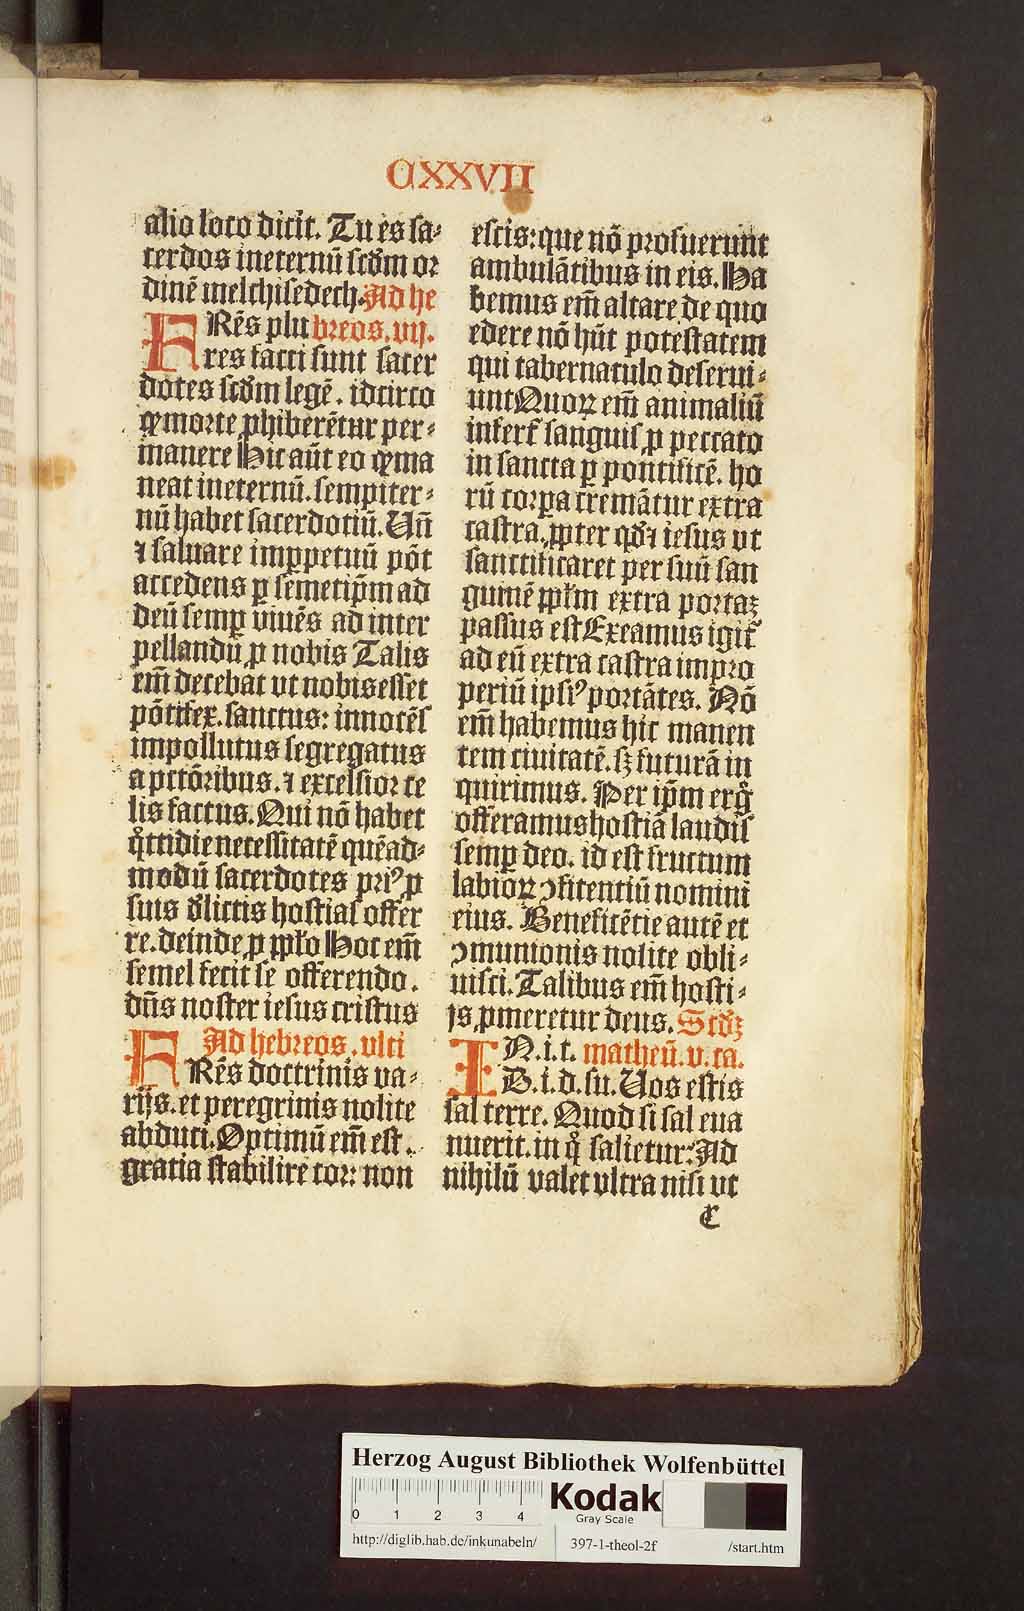 CXXVII
alio loco dicit. Tu es sa⸗
cerdos ineternū scd̄m or
dinē melchisedech. Ad he
FRēs plu breos. vij.
res facti sunt sacer
dotes scd̄m legē. idcirco
ꝙ morte ꝓhiberētur per⸗
manere Hic aūt eo ꝙ ma
neat ineternū. sempiter⸗
nū habet sacerdotiū. Uñ
⁊ saluare imꝑpetuū pōt
accedens ꝑ semetip̄m ad
deū semꝑ viuēs ad inter
pellandū ꝓ nobis Talis
em̄ decebat vt nobis esset
pōtifex. sanctus: innocēs
impollutus segregatus
a pctōribus. ⁊ excelsior ce
lis factus. Qui nō habet
q̊ttidie necessitatē quēad⸗
modū sacerdotes priꝰ ꝓ
suis d̄lictis hostias offer
re. deinde ꝓ pp̄lo Hoc em̄
semel fecit se offerendo.
dn̄s noster iesus cristus
Ad hebreos. vlti
FRēs doctrinis va⸗
rijs. et peregrinis nolite
abduci. Optimū em̄ est.
gratia stabilire cor: non
escis: que nō profuerunt
ambulātibus in eis. Ha
bemus em̄ altare de quo
edere nō hn̄t potestatem
qui tabernaculo deserui⸗
unt Quoꝝ em̄ animaliū
infert̄ sanguis ꝓ peccato
in sancta ꝑ pontificē. ho
rū corꝑa cremātur extra
castra. ꝓpter qd̄ ⁊ iesus vt
sanctificaret per suū san
guinē pp̄lm extra portaꝫ
passus est Exeamus igit̄
ad eū extra castra impro
periū ipsiꝰ portātes. Nō
em̄ habemus hic manen
tem ciuitatē. sꝫ futurā in
quirimus. Per ip̄m erg̊
offeramus hostiā laudis
semꝑ deo. id est fructum
labioꝝ ꝯfitentiū nomini
eius. Beneficētie autē et
ꝯmunionis nolite obli⸗
uisci. Talibus em̄ hosti⸗
js ꝓmeretur deus. Scd̄ꝫ
IN. i. t. matheū. v. ca.
D. i. d. su. Uos estis
sal terre. Quod si sal eua
nuerit. in q̊ salietur: Ad
nihilū valet vltra nisi vt
Herzog August Bibliothek Wolfenbüttel
0 1 2 3 4
Kodak
Gray Scale
http://diglib.hab.de/inkunabeln/ 397-1-theol-2f /start.htm